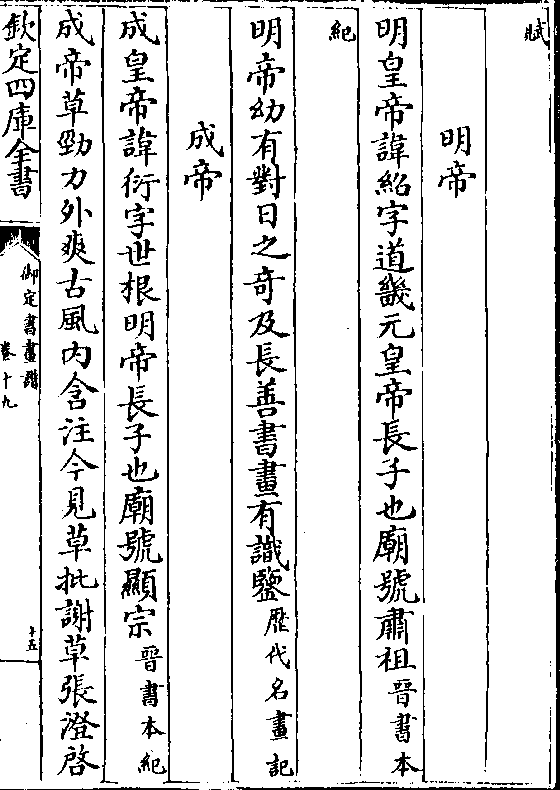 賦
明帝
明皇帝諱紹字道畿元皇帝長子也廟號肅祖晉書本
紀
明帝幼有對日之奇及長善書畫有識鑒歷代名畫記
成帝
成皇帝諱衍字世根明帝長子也廟號顯宗晉書本紀
成帝草勁力外爽古風内含注今見草批謝草張澄啓
欽定四庫全書
御定書畫譜
卷十九
十五